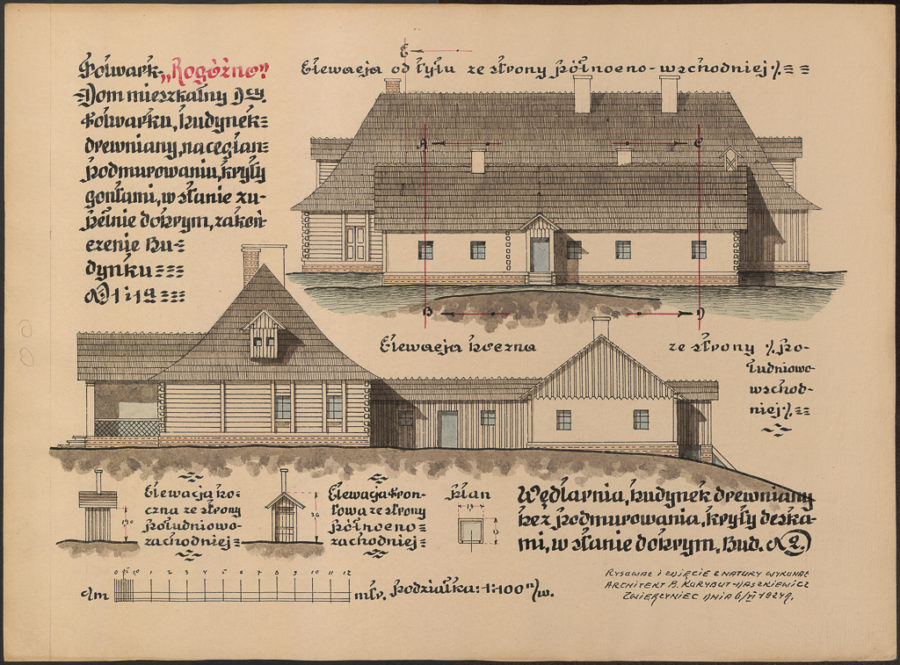 Folwark „Rogóźno”
Dom mieszkalny
folwarku, budynek
drewniany, na ceglan=
podmurowaniu, kryty
gontami, w stanie zu-
pełnie dobrym, zakoń-
czenie Bu=
dynku ===
№ 1 i 1a ===
Elewacja od tyłu ze strony północno-wschodniej %. ==
E
A
C
B
D
Elewacja boczna
ze strony %. Po-
łudniowo
wschod-
niej %. ==
Elewacja bo-
czna ze strony
południowo-
zachodniej=
Elewacja fron-
towa ze strony
północno=
zachodniej=
Plan
Wędlarnia, budynek drewniany
bez podmurowania, kryty deska-
mi, w stanie dobrym, Bud. № 2.)
c/m
0 1 2 3 4 5 6 7 8 9 10 11 12
mtr. Podziałka: 1:100 n/w.
Rysował i zdjęcie z natury wykonał
Architekt B. Korybut-Daszkiewicz
Zwierzyniec dnia 6/VI 1924 r.